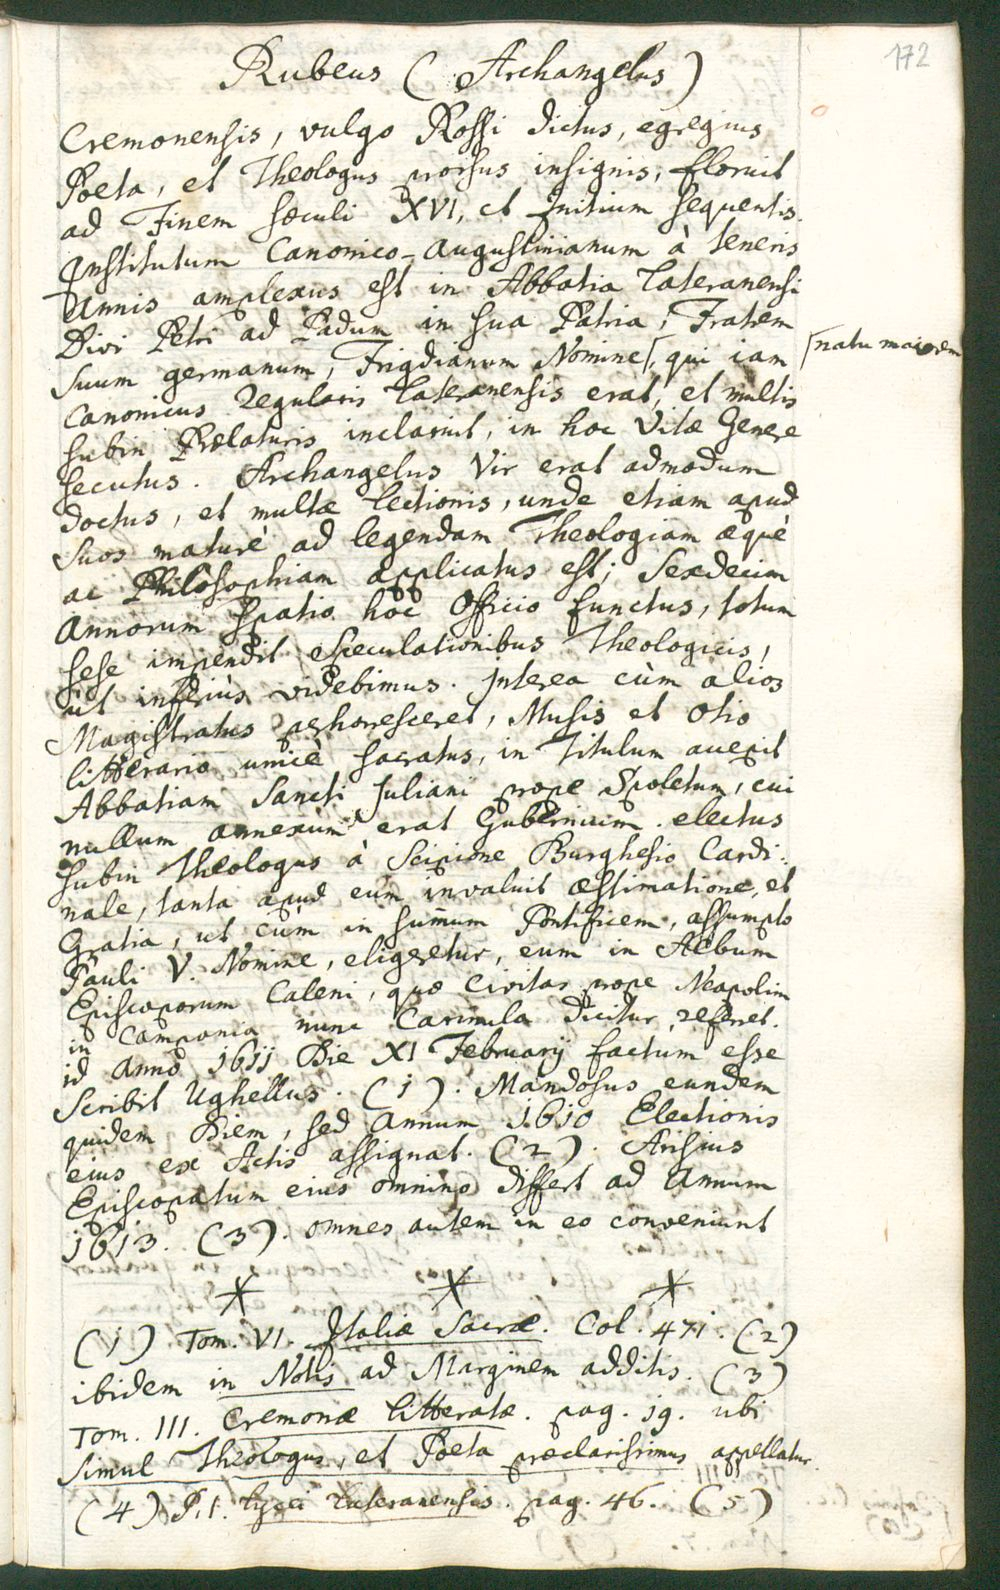 172
Rubeus (Archangelus)
Cremonensis, vulgo Rossi dictus, egregius
Poeta, et Theologus prorsus insignis, floruit
ad Finem sæculi XVI, et Initium sequentis.
Institutum Canonico-Augustinianum à teneris
Annis amplexus est in Abbatia Lateranensi
Divi Petri ad Padum in sua Patria, Fratrem
suum germanum, Frigdianum Nomine ⌈, qui iam ⌈natu maiorem
Canonicus Regularis Lateranensis erat, et multis
subin Prælaturis inclaruit, in hoc Vitæ Genere
secutus. Archangelus Vir erat admodum
doctus, et multæ lectionis, unde etiam apud
suos maturè ad legendam Theologiam æquè
ac Philosophiam applicatus est; Sexdecim
Annorum spatio hoc Officio functus, totum
sese impendit speculationibus Theologicis,
ut inferiùs videbimus. Interea cùm alios
Magistratus perhorresceret, Musis et Otio
litterario unicè sacratus, in Titulum accepit
Abbatiam Sancti Juliani prope Spoletum, cui
nullum annexum erat Gubernium. electus
subin Theologus à Scipione Burghesio Cardi:
nale, tanta apud eum invaluit æstimatione, et
Gratia, ut cùm in sum̄um Pontificem, assumpto
Pauli V. Nomine, eligeretur, eum in Album
Episcoporum Caleni, quæ Civitas prope Neapolim
in Campania nunc Carinula dicitur, referret.
id Anno 1611 Die XI Februarij factum esse
scribit Ughellus. (1). Mandosus eundem
quidem Diem, sed Annum 1610 Electionis
eius ex Actis assignat. (2). Arisius
Episcopatum eius omnino differt ad Annum
1613. (3). omnes autem in eo conveniunt
(1) Tom. VI. Italiæ Sacræ. Col. 471. (2)
ibidem in Notis ad Marginem additis. (3)
Tom. III. Cremonæ litteratæ. pag. 19. ubi
simul Theologus, et Poeta præclarissimus appellatur.
(4) P. 1. Lycei Lateranensis. pag. 46. (5)